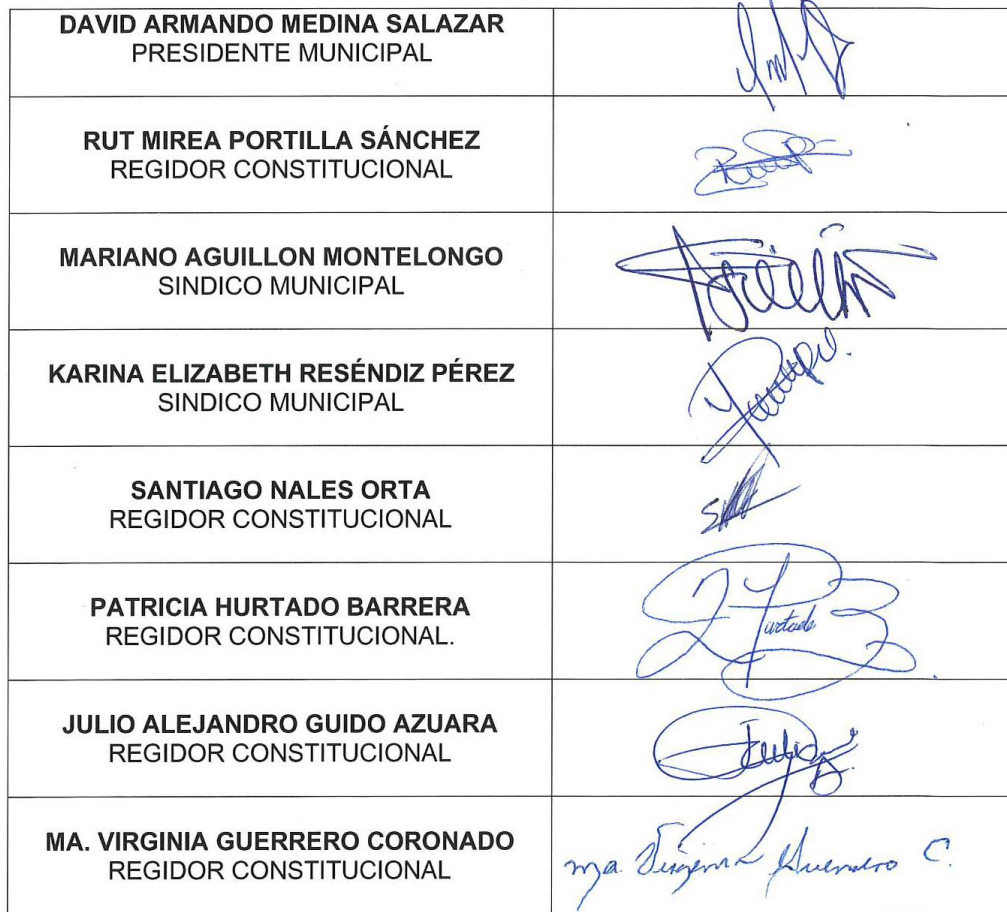 DAVID ARMANDO MEDINA SALAZAR
PRESIDENTE MUNICIPAL
RUT MIREA PORTILLA SÁNCHEZ
REGIDOR CONSTITUCIONAL
MARIANO AGUILLON MONTELONGO
SINDICO MUNICIPAL
KARINA ELIZABETH RESÉNDIZ PÉREZ
SINDICO MUNICIPAL
SANTIAGO NALES ORTA
REGIDOR CONSTITUCIONAL
PATRICIA HURTADO BARRERA
REGIDOR CONSTITUCIONAL.
Hurtado
JULIO ALEJANDRO GUIDO AZUARA
REGIDOR CONSTITUCIONAL
MA. VIRGINIA GUERRERO CORONADO
REGIDOR CONSTITUCIONAL
Ma. Virginia Guerrero C.